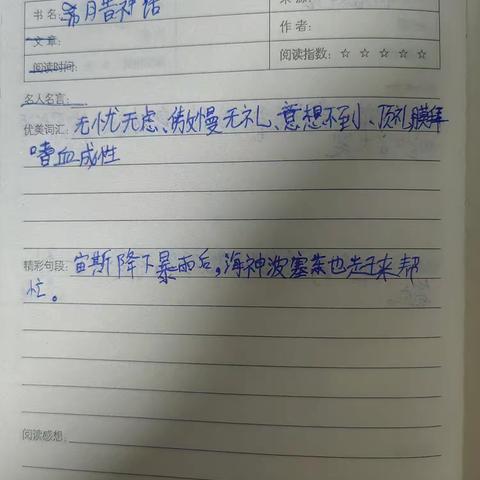 书名: 希月昔神话
文章:
作者:
阅读时间:
阅读指数: ☆ ☆ ☆ ☆ ☆
名人名言:
优美词汇: 无忧无虑、傲慢无礼、意想不到、顶礼膜拜
嗜血成性
精彩句段: 宙斯降下暴雨后,海神波塞东也赶来帮
忙。
阅读感想: